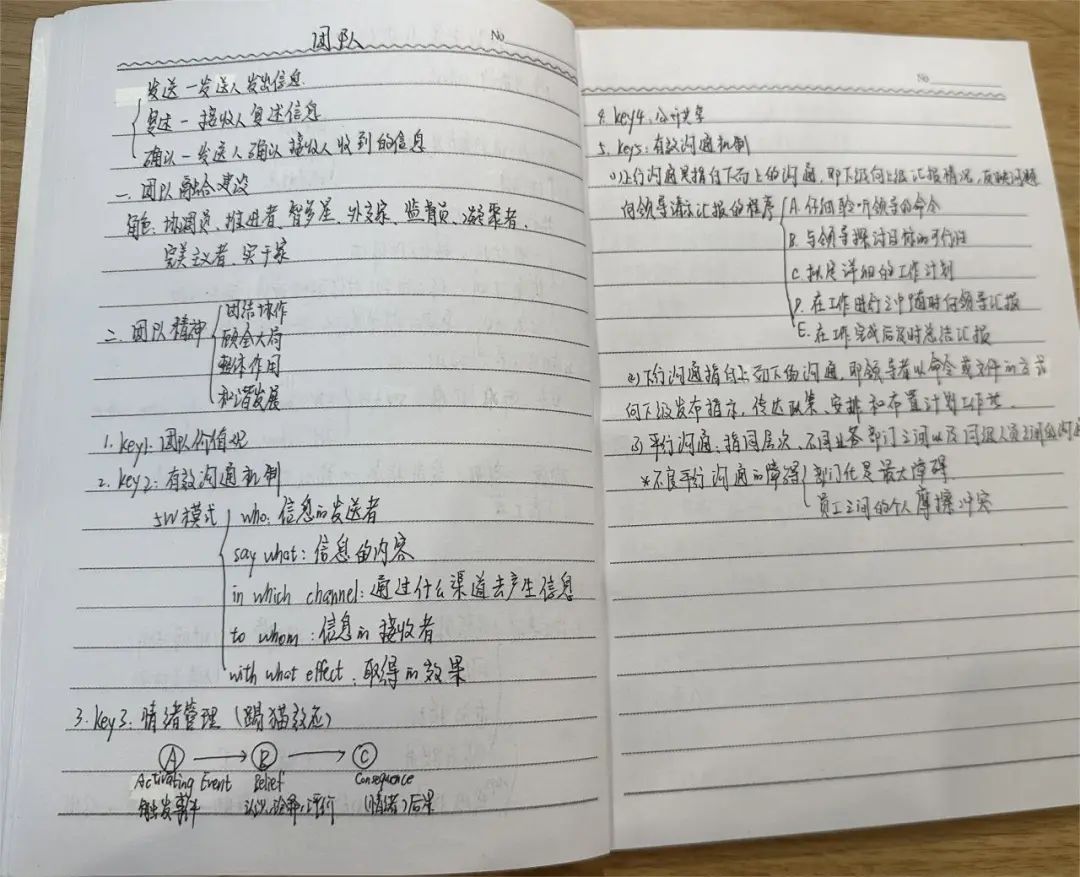 团队
No
发送—发送人发出信息
复述—接收人复述信息
确认—发送人确认接收人收到的信息
一.团队融合建设
角色:协调员、推进者、智多星、外交家、监督员、凝聚者、
完美主义者、实干家
二.团队精神
团结协作
顾全大局
整体作用
和谐发展
1.key1:团队价值观
2.key2:有效沟通机制
5W模式
who:信息的发送者
say what:信息的内容
in which channel:通过什么渠道去产生信息
to whom:信息的接收者
with what effect:取得的效果
3.key3:情绪管理(踢猫效应)
A → B → C
Activating Event Belief Consequence
触发事件 认识,诠释,评价 (情绪)后果
No
4.key4:公开共享
5.key5:有效沟通机制
(1)上行沟通是指自下而上的沟通,即下级向上级汇报情况,反映问题
向领导请示汇报的程序
A.仔细聆听领导的命令
B.与领导探讨目标的可行性
C.拟定详细的工作计划
D.在工作进行之中随时向领导汇报
E.在工作完成后及时总结汇报
(2)下行沟通指自上而下的沟通,即领导者以命令或文件的方式
向下级发布指示,传达政策、安排和布置计划工作等.
(3)平行沟通:指同层次、不同业务部门之间以及同级人员之间的沟通
*不良平行沟通的障碍
部门化是最大障碍
员工之间的个人摩擦冲突